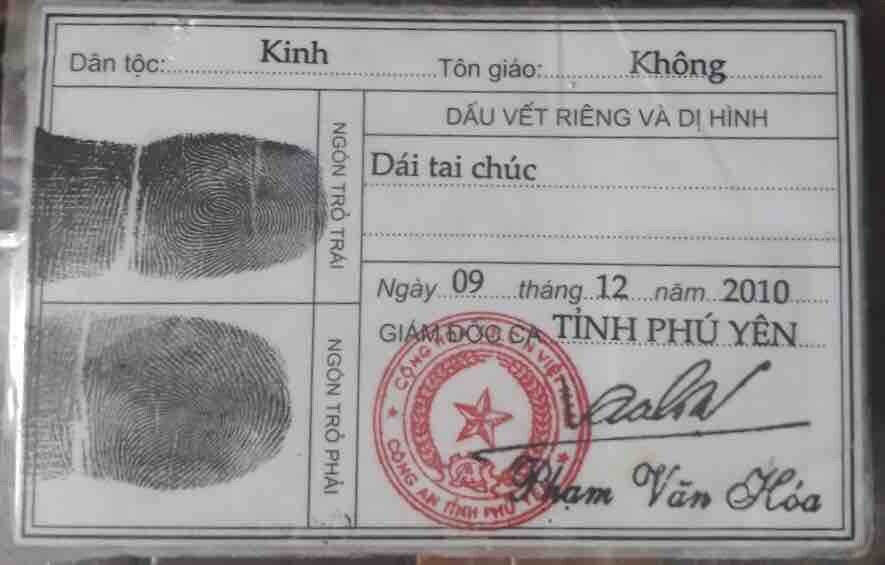 Dân tộc: Kinh Tôn giáo: Không
NGÓN TRỎ TRÁI
NGÓN TRỎ PHẢI
DẤU VẾT RIÊNG VÀ DỊ HÌNH
Dái tai chúc
Ngày 09 tháng 12 năm 2010
GIÁM ĐỐC CA TỈNH PHÚ YÊN
CÔNG AN TỈNH PHÚ YÊN
Phạm Văn Hóa